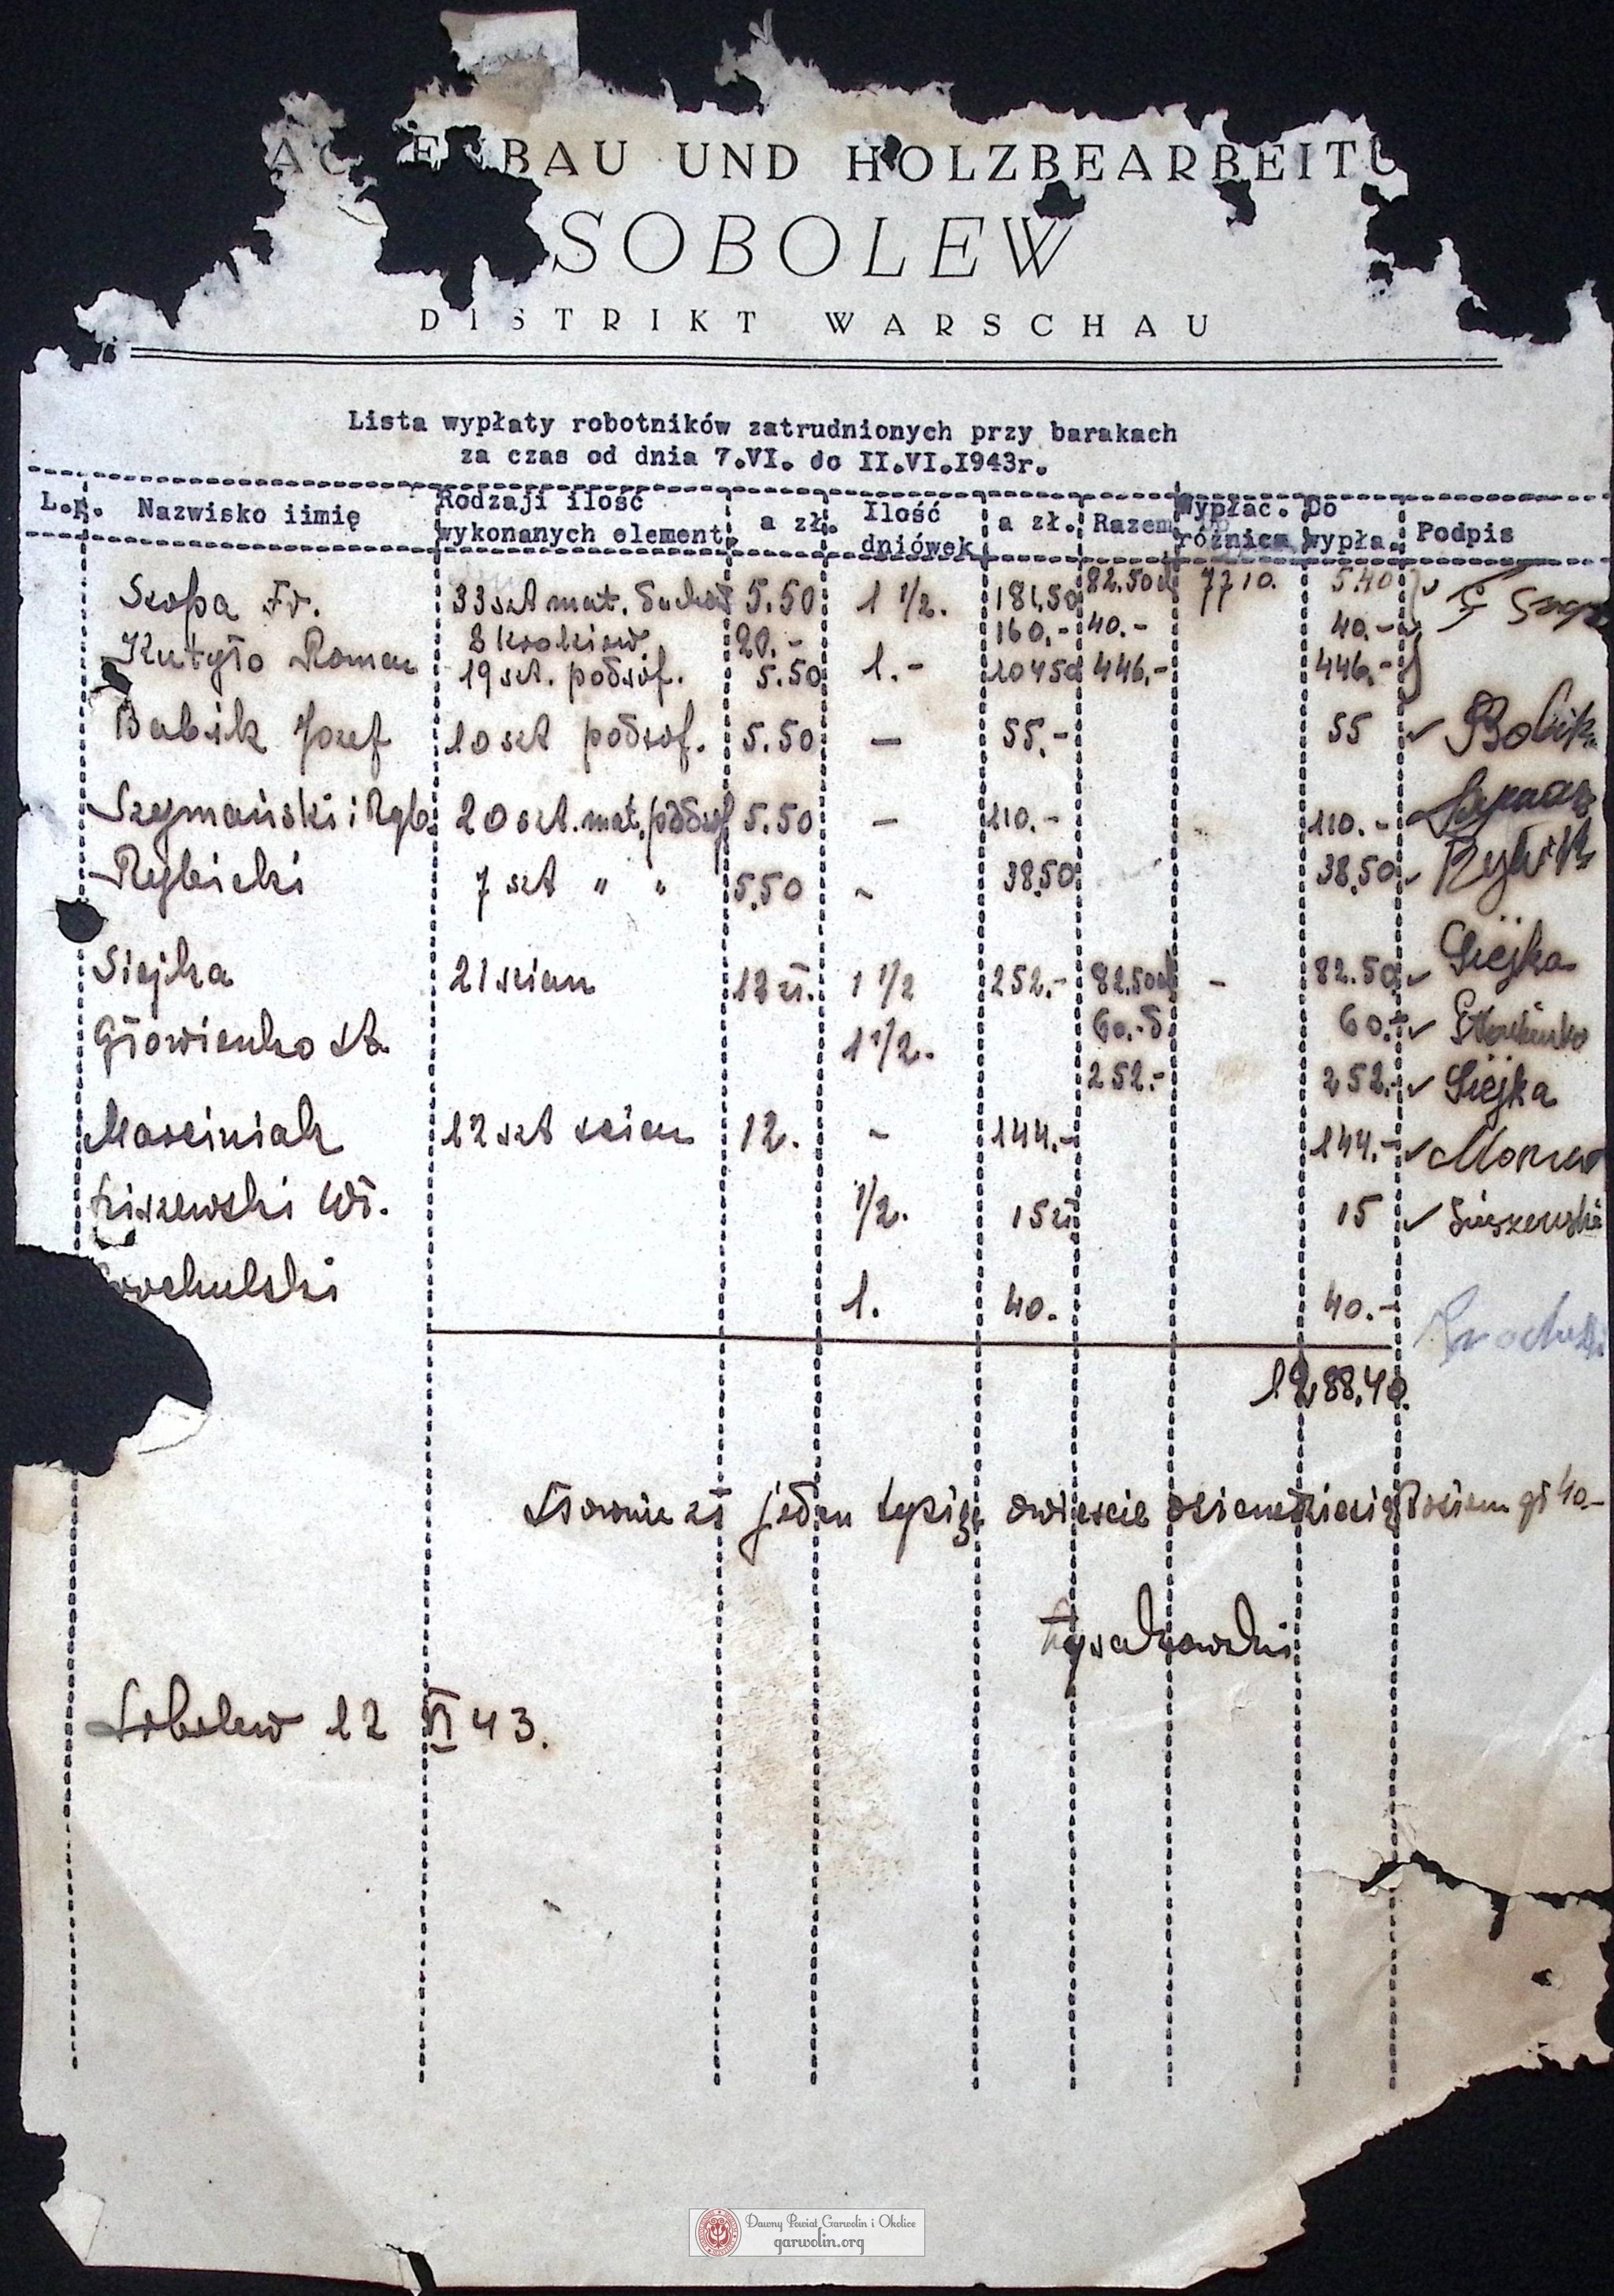 BAU UND HOLZBEARBEITU
SOBOLEW
DISTRIKT WARSCHAU
Lista wypłaty robotników zatrudnionych przy barakach
za czas od dnia 7.VI. do II.VI.I943r.
L.p. Nazwisko iimię Rodzaji ilość wykonanych element. a zł. Ilość dniówek a zł. Razem Wypłac. różnica Do wypła. Podpis
Szopa Fr. 33 szt mat. 5.50 1 1/2. 181,50 82.50 77 10. 5.40
8 krokiew. 20.- 160.- 40.- 40.-
Kutyło Roman 19 szt. podsuf. 5.50 1.- 10450 446,- 446,-
Babik Józef 10 szt podsuf. 5.50 — 55.- 55
Szymański i Ryb. 20 szt. mat. podsuf 5.50 — 110.- 110.-
Rybicki 7 szt " " 5,50 - 38,50 38,50
Siejka 21 scian 12 zł. 1 1/2 252.- 82,50 - 82.50 Siejka
Głowienko St. 1 1/2. 60.- 60.-
252.- 252.- Siejka
Marciniak 12 szt scian 12. - 144.- 144.-
Liszewski Wł. 1/2. 15 zł 15 Liszewski
rochulski 1. 40. 40.-
1288,40.
Słownie zł jeden tysiąc dwieście osiemdziesiąt osiem gr 40.-
Sobolew 12 VI 43.
Dawny Powiat Garwolin i Okolice
garwolin.org